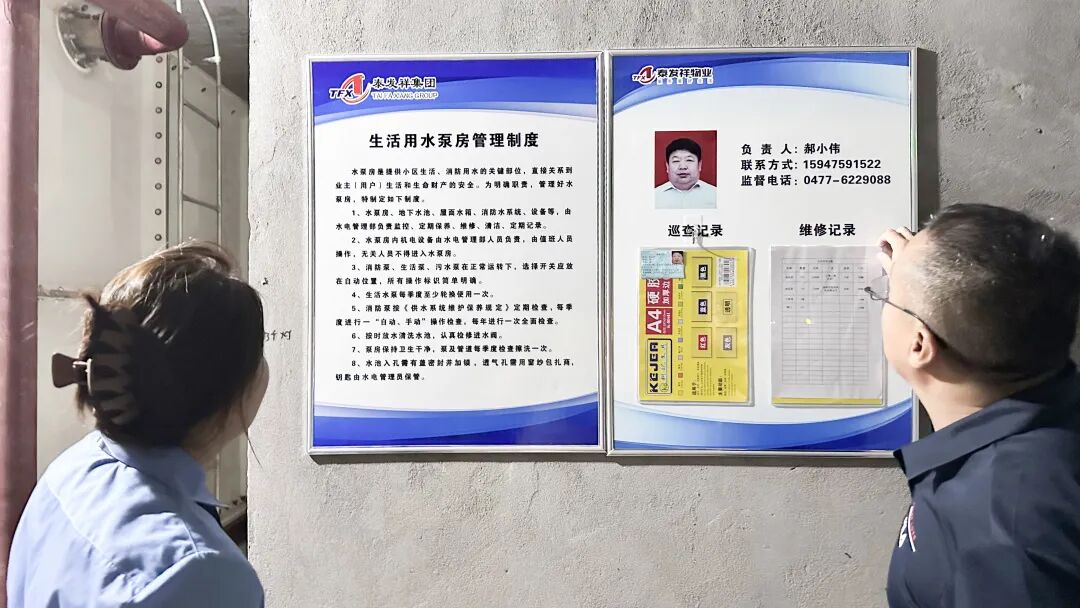 TFX
泰发祥集团
TAI FA XIANG GROUP
生活用水泵房管理制度
水泵房是提供小区生活、消防用水的关键部位，直接关系到
业主（用户）生活和生命财产的安全。为明确职责，管理好水
泵房，特制定如下制度。
1、水泵房、地下水池、屋面水箱、消防水系统、设备等，由
水电管理部负责监控、定期保养、维修、清洁、定期记录。
2、水泵房内机电设备由水电管理部人员负责，由值班人员
操作，无关人员不得进入水泵房。
3、消防泵、生活泵、污水泵在正常运转下，选择开关应放
在自动位置，所有操作标识简单明确。
4、生活水泵每季度至少轮换使用一次。
5、消防泵按《供水系统维护保养规定》定期检查，每季
度进行一“自动、手动”操作检查，每年进行一次全面检查。
6、按时放水清洗水池，认真检修进水阀。
7、泵房保持卫生干净，泵及管道每季度检查擦洗一次。
8、水池入孔需有盖密封并加锁、透气孔需用窗纱包扎商，
钥匙由水电管理员保管。
TFX
泰发祥物业
负 责 人：郝小伟
联系方式：15947591522
监督电话：0477-6229088
巡查记录
维修记录
A4 硬胶
加厚边
KEJEA
黑色
蓝色
透明
红色
灰色